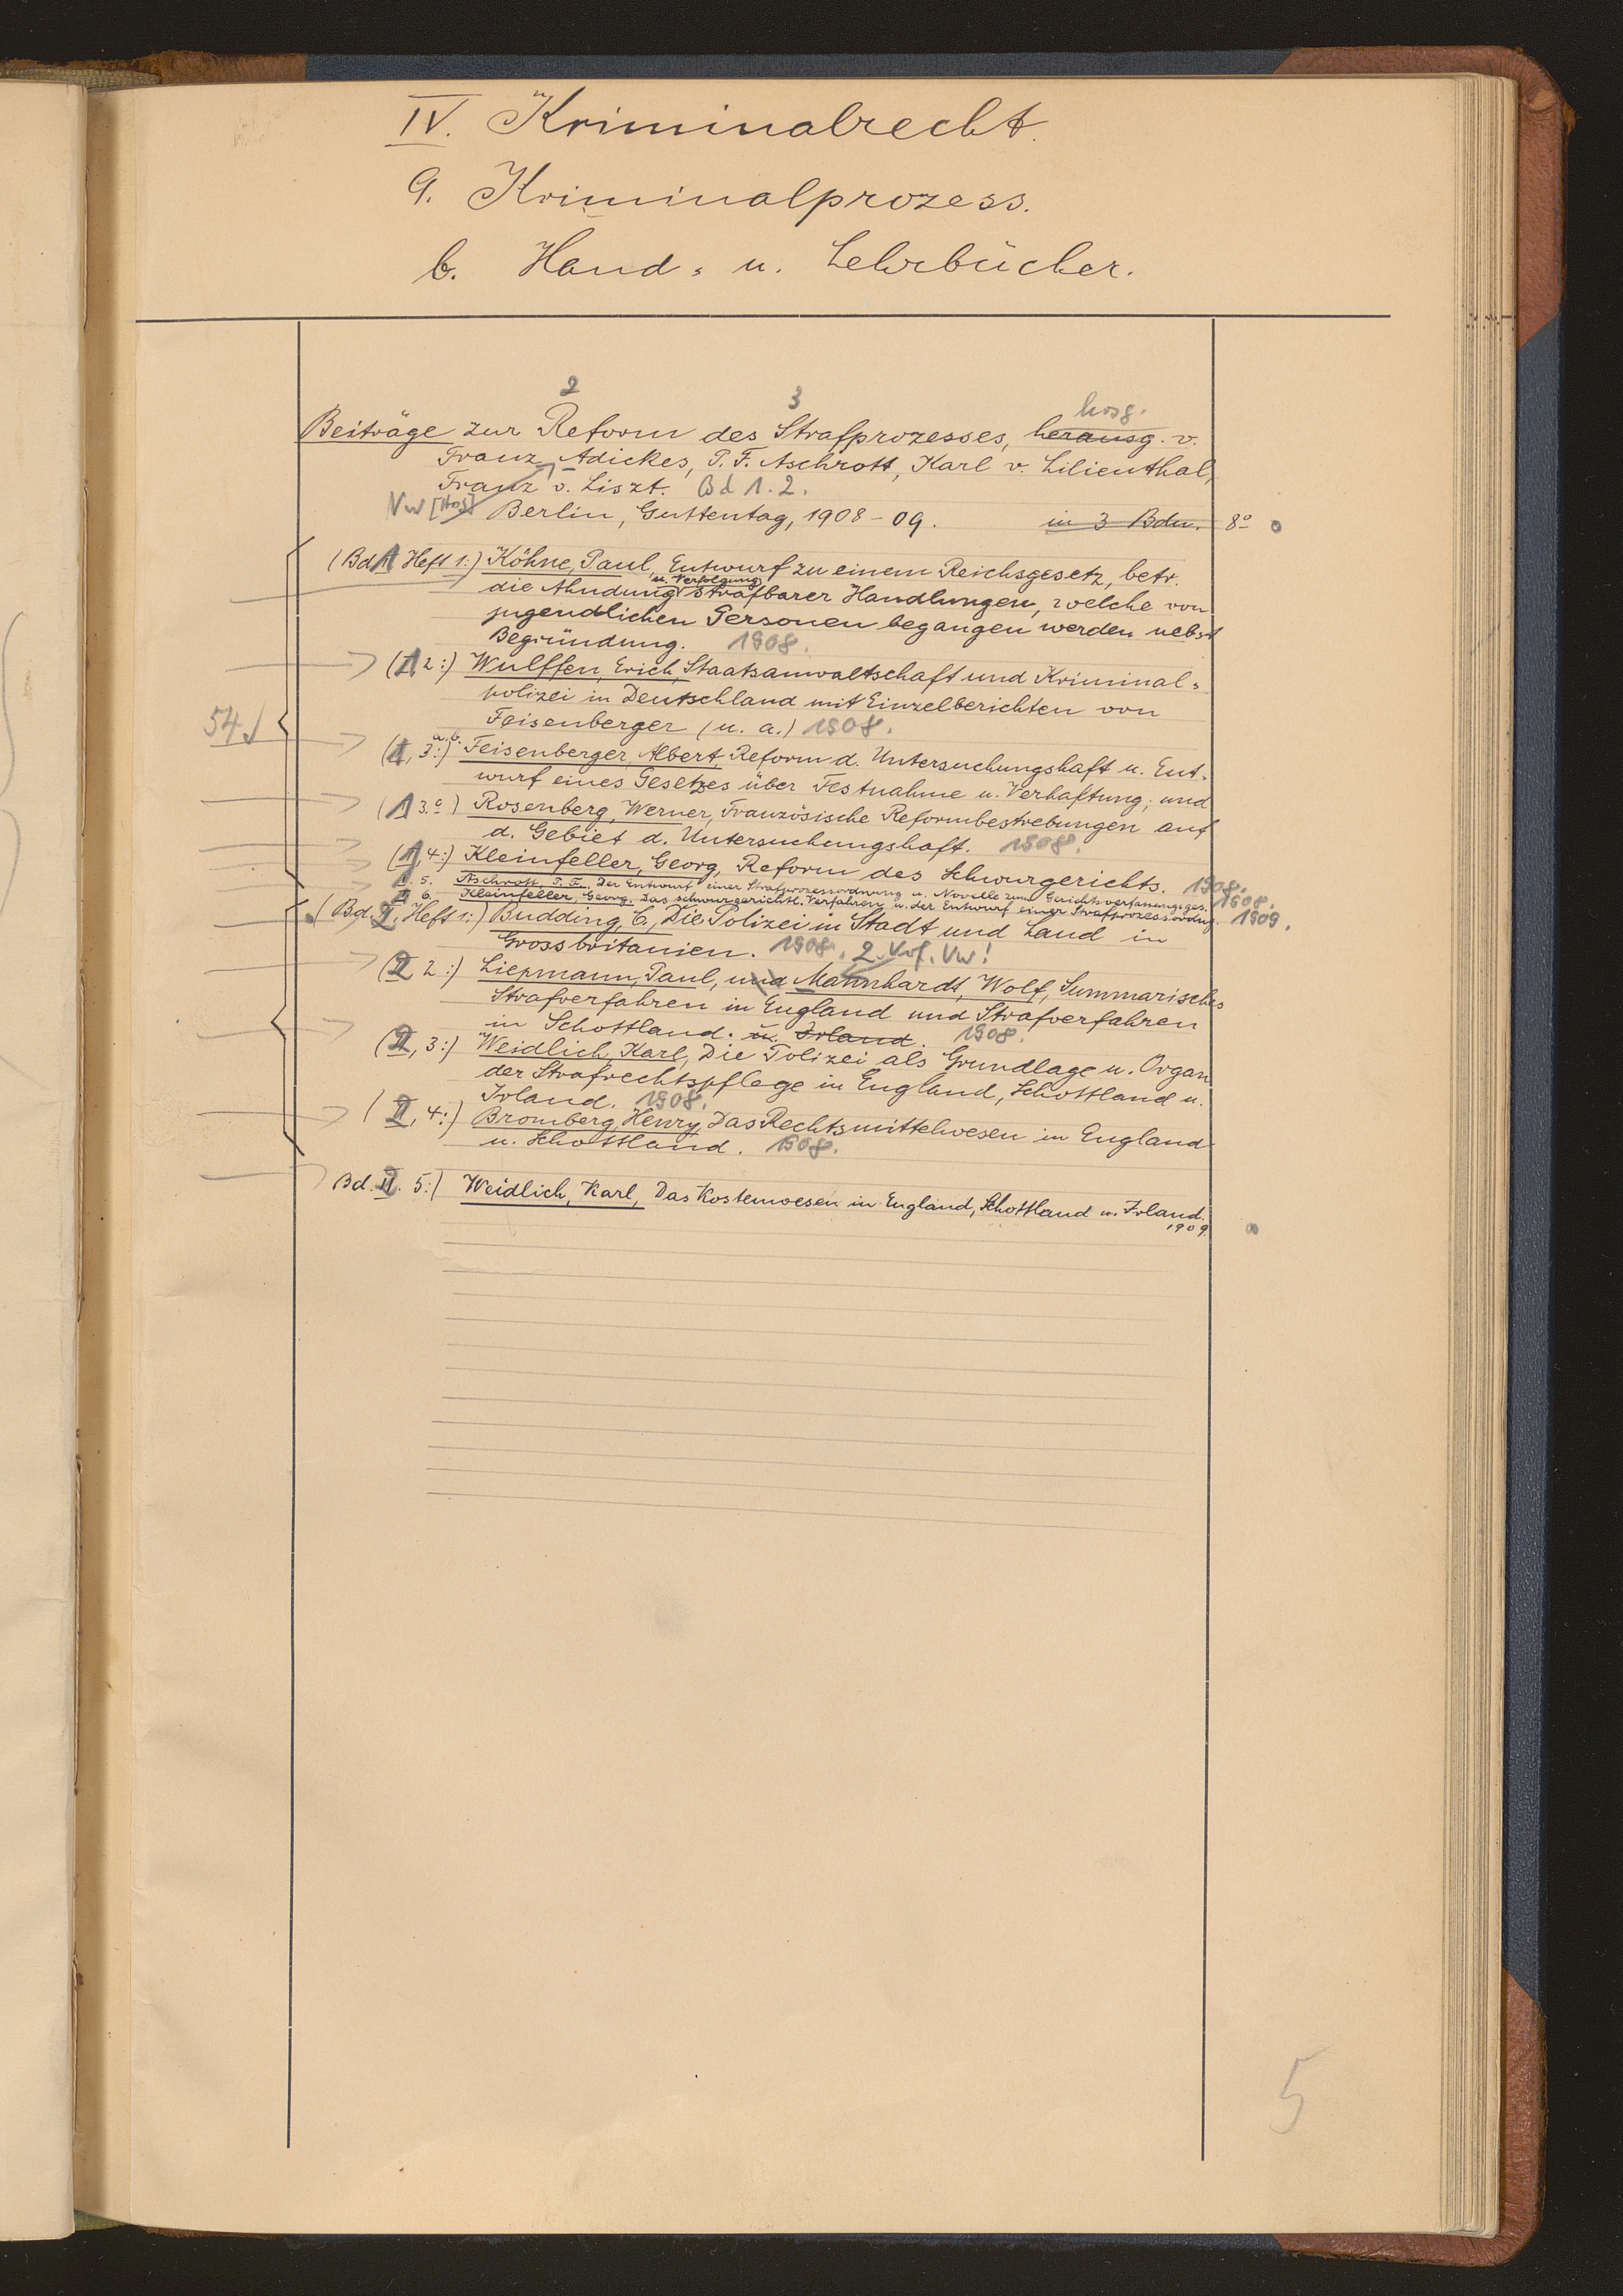 IV. Kriminalrecht.
9. Kriminalprozess.
b. Hand- u. Lehrbücher.
2 3 hrsg.
Beiträge zur Reform des Strafprozesses, herausg. v.
Franz Adickes, P. F. Aschrott, Karl v. Lilienthal,
Franz v. Liszt. Bd 1. 2.
Vw [Hrsg] Berlin, Guttentag, 1908-09. in 3 Bdn. 8°
(Bd 1 Heft 1:) Köhne, Paul, Entwurf zu einem Reichsgesetz, betr.
u. Verfolgung
die Ahndung strafbarer Handlungen, welche von
jugendlichen Personen begangen werden nebst
Begründung. 1908.
(1 2:) Wulffen, Erich, Staatsanwaltschaft und Kriminal-
polizei in Deutschland mit Einzelberichten von
Feisenberger (u. a.) 1908.
54
(1, 3 a.b.:) Feisenberger, Albert, Reform d. Untersuchungshaft u. Ent-
wurf eines Gesetzes über Festnahme u. Verhaftung; und
(1 3.c) Rosenberg, Werner, Französische Reformbestrebungen auf
d. Gebiet d. Untersuchungshaft. 1908.
(1, 4:) Kleinfeller, Georg, Reform des Schwurgerichts. 1908.
1. 5. Aschrott, P. F., Der Entwurf einer Strafprozessordnung u. Novelle zum Gerichtsverfassungsges. 1908.
1 6. Kleinfeller, Georg, Das schwurgerichtl. Verfahren u. der Entwurf einer Strafprozessordng. 1909.
(Bd. 2, Heft 1:) Budding, C, Die Polizei in Stadt und Land in
Grossbritanien. 1908. 2. Vrf. Vw!
(2 2:) Liepmann, Paul, und Mannhardt, Wolf, Summarisches
Strafverfahren in England und Strafverfahren
in Schottland. u. Irland. 1908.
(2, 3:) Weidlich, Karl, Die Polizei als Grundlage u. Organ
der Strafrechtspflege in England, Schottland u.
Irland. 1908.
(2, 4:) Bromberg, Henry, Das Rechtsmittelwesen in England
u. Schottland. 1908.
Bd. 2. 5:) Weidlich, Karl, Das Kostenwesen in England, Schottland u. Irland.
1909.
5